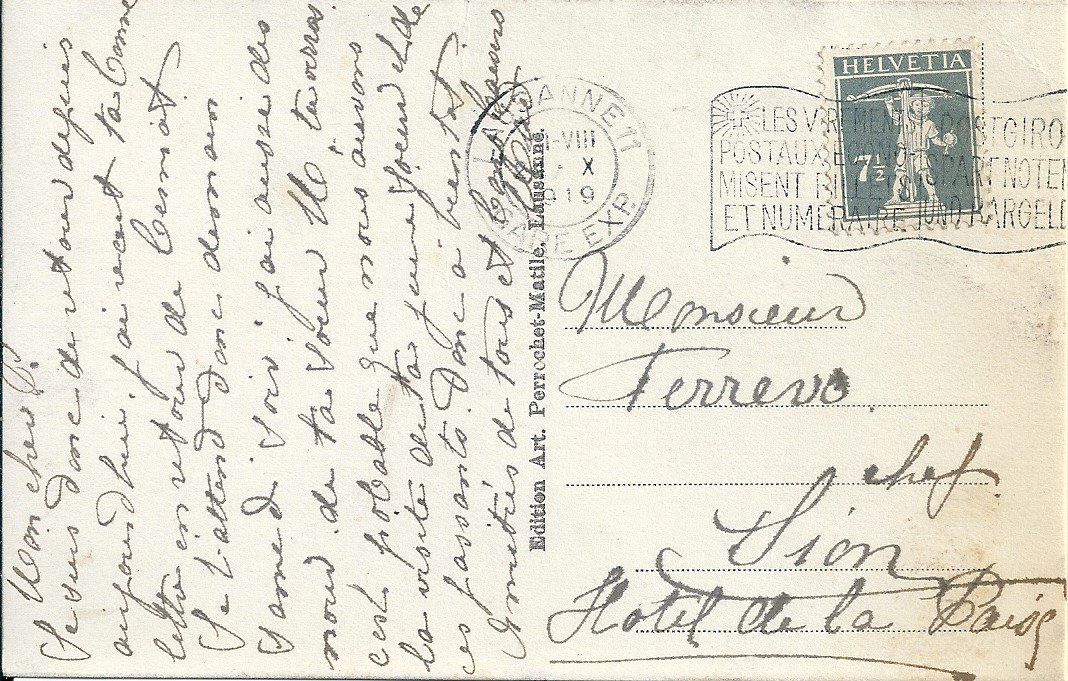 Mon cher P.
Je suis donc de retour depuis
aujourd'hui, j'ai recut ta bonne
lettre en retour de
Je t'attend donc demain
samedi soir, j'ai aussi des
nouv. de ta soeur M tu verras
c'est probable que nous aurons
la visite de ta jeune soeur et de
ces passants. Donc à bientôt.
Amitiés de tous et
Edition Art. Perrochet-Matile, Lausanne.
LAUSANNE 11
VIII
X
919
GARE EXP.
HELVETIA
7½
LES VIREMENTS
POSTAUX ECONO-
MISENT BILLETS
ET NUMERAIRE
POSTGIRO
SPART NOTEN
UND BARGELD
Monsieur
Terrevo
chef
Sion
Hotel de la Paix